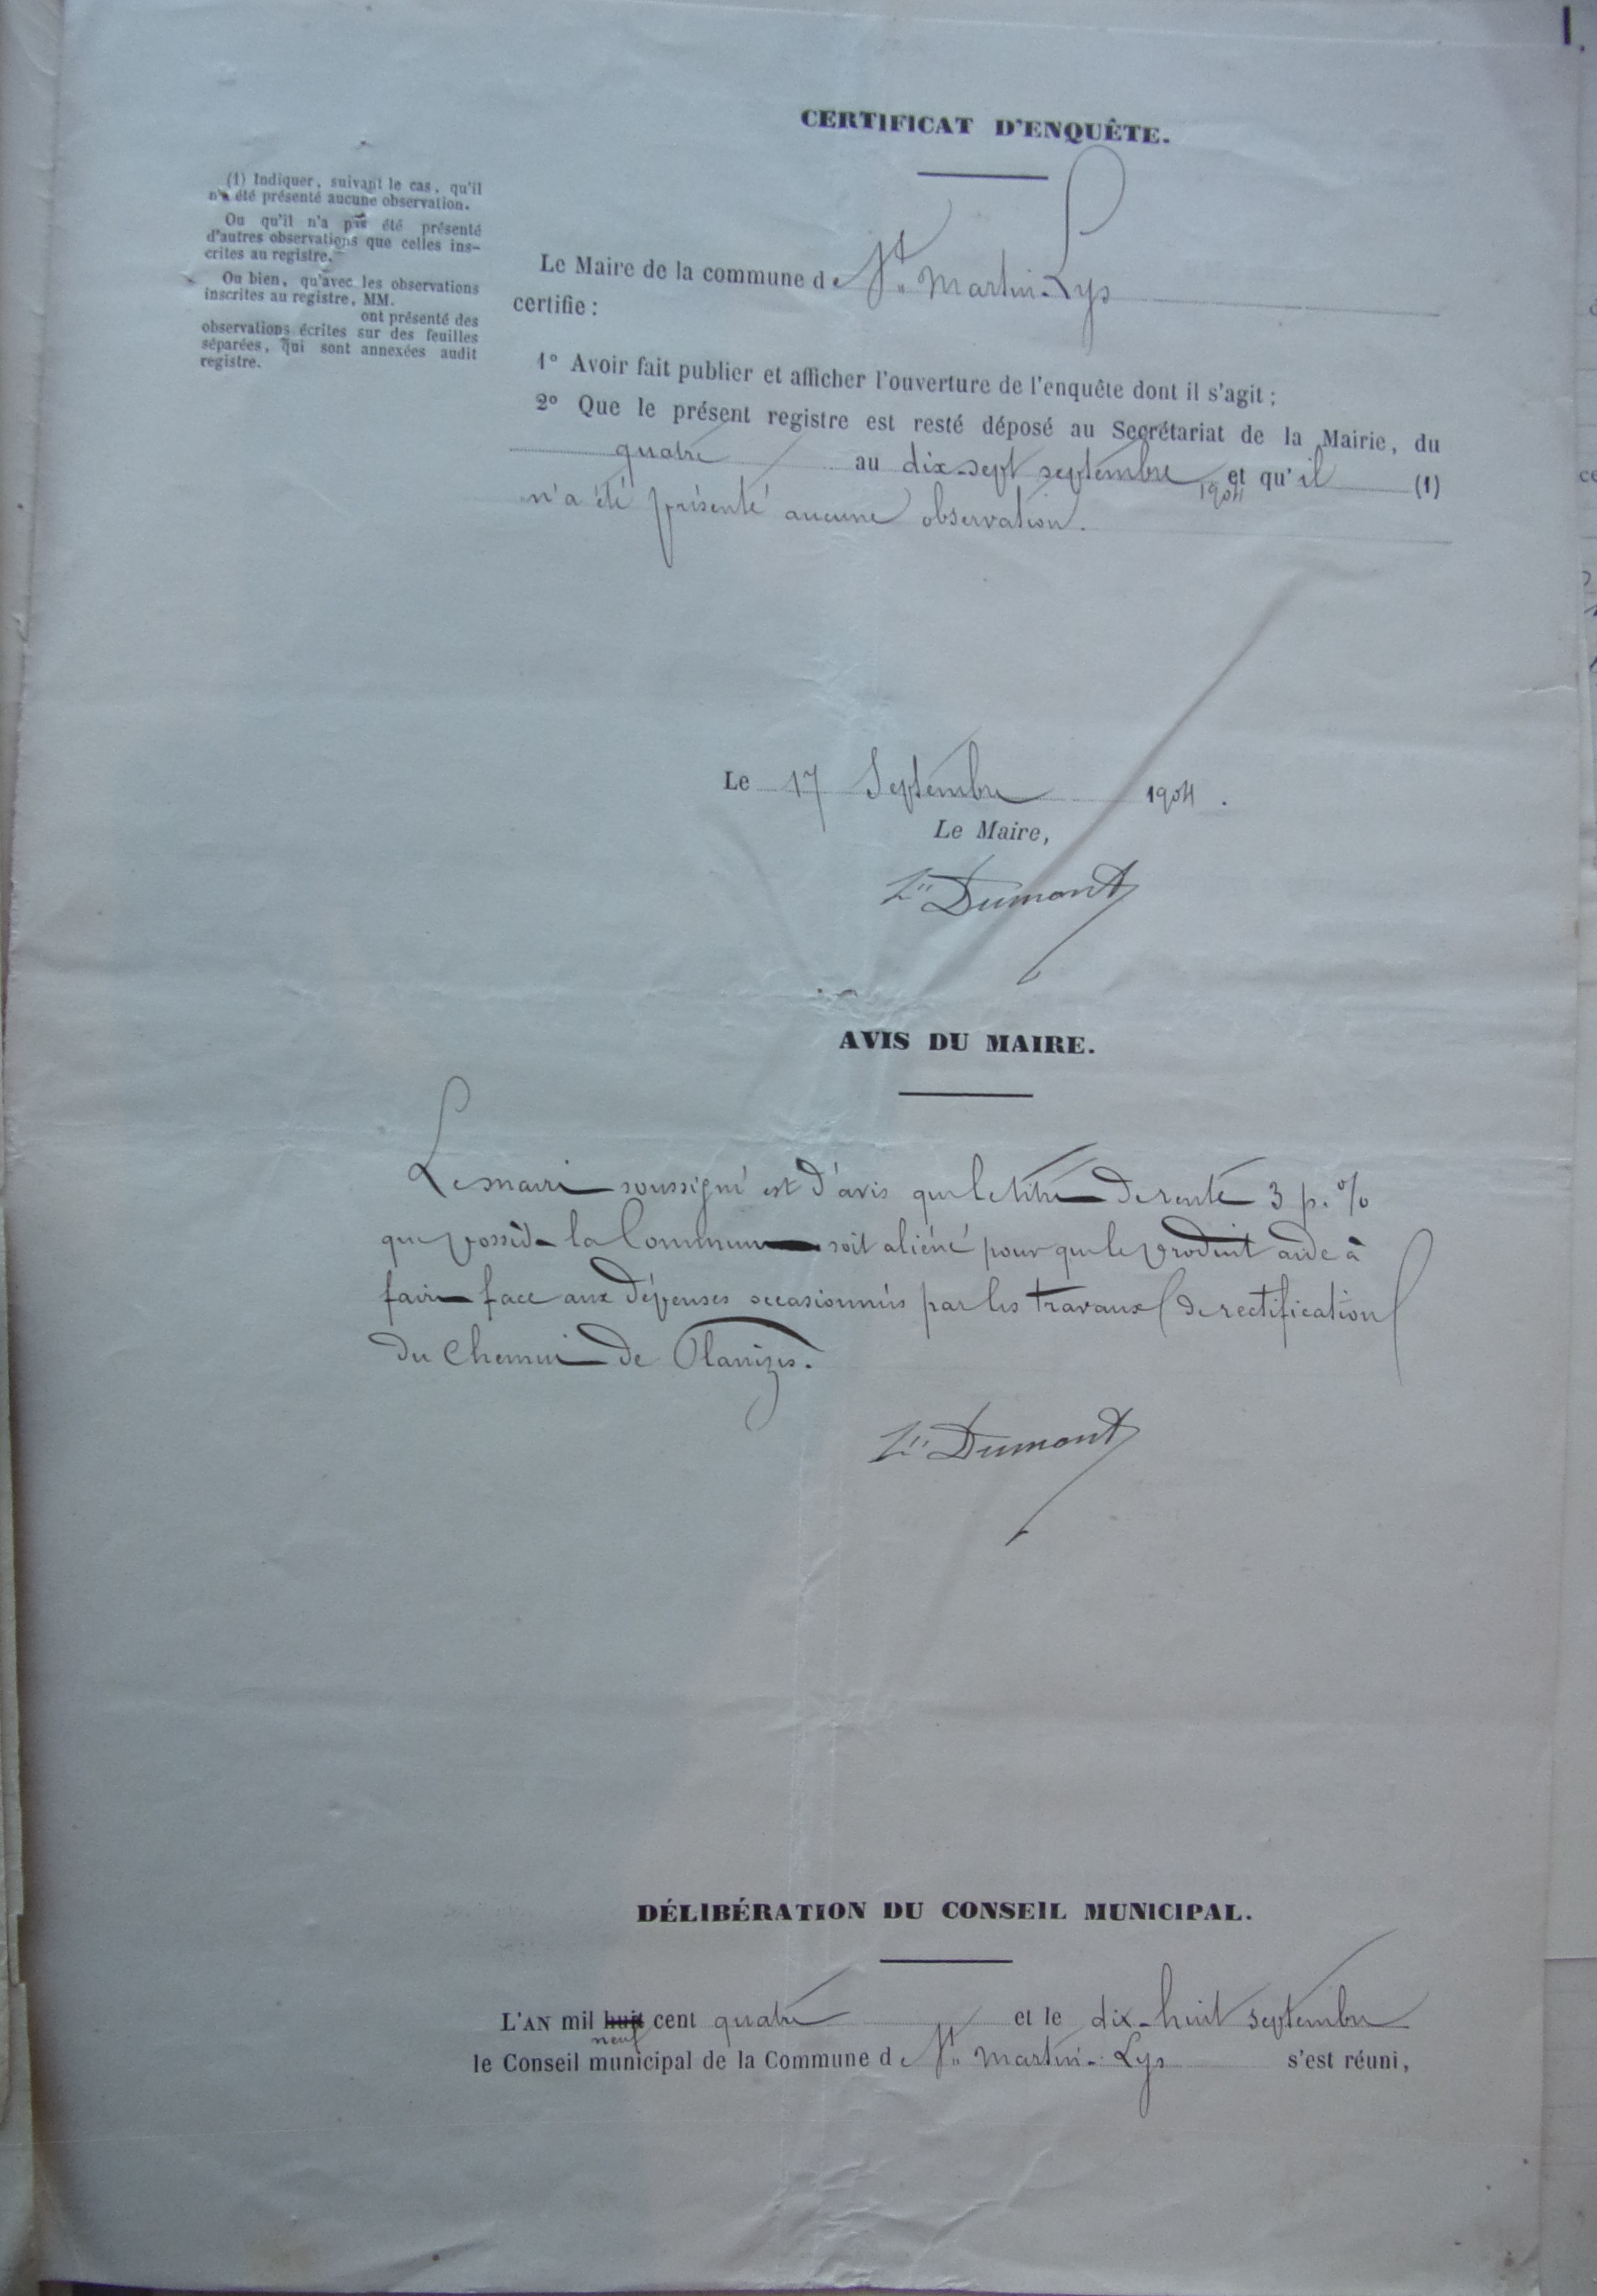 CERTIFICAT D'ENQUÊTE.
(1) Indiquer, suivant le cas, qu'il
n'a été présenté aucune observation.
Ou qu'il n'a pas été présenté
d'autres observations que celles ins-
crites au registre.
Ou bien, qu'avec les observations
inscrites au registre, MM.
ont présenté des
observations écrites sur des feuilles
séparées, qui sont annexées audit
registre.
Le Maire de la commune de St Martin-Lys
certifie :
1° Avoir fait publier et afficher l'ouverture de l'enquête dont il s'agit ;
2° Que le présent registre est resté déposé au Secrétariat de la Mairie, du
quatre au dix-sept septembre 1904 et qu'il (1)
n'a été présenté aucune observation.
Le 17 Septembre 1904.
Le Maire,
Dumont
AVIS DU MAIRE.
Le maire soussigné est d'avis que le titre de rente 3 p. %
que possède la Commune soit aliéné pour que le produit aide à
faire face aux dépenses occasionnées par les travaux de rectification
du Chemin de Planèzes.
Dumont
DÉLIBÉRATION DU CONSEIL MUNICIPAL.
L'AN mil huit cent quatre et le dix-huit septembre
neuf
le Conseil municipal de la Commune de St Martin-Lys s'est réuni,